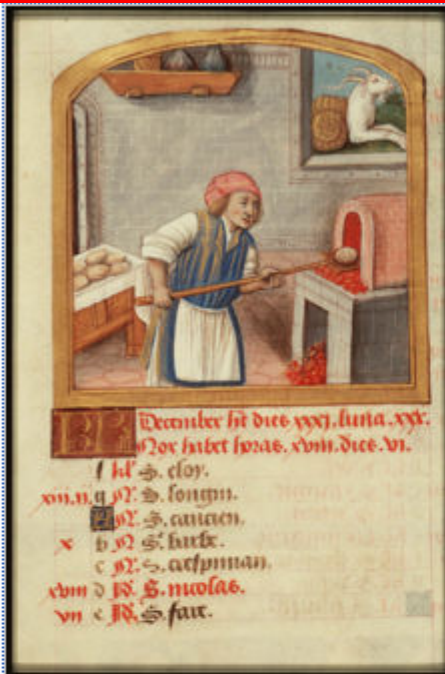 KL December hīt dies xxxj. luna. xxx.
Nox habet horas. xviii. dies. vi.
f kł S. eloy.
xiii. ii. g N. S. longin.
A N. S. cancien.
x b N S. barbe.
c N. S. crespinian.
xviii d N. S. nicolas.
vii e N. S. fare.